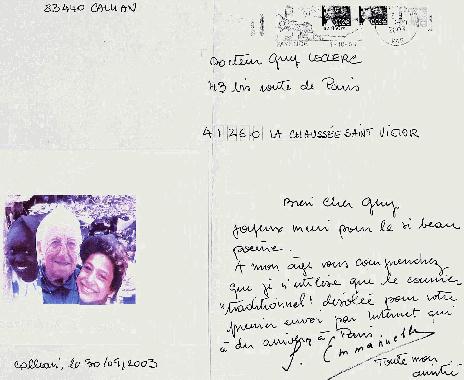 83440 CALLIAN
Docteur Guy LECLERC
43 bis route de Paris
41260 LA CHAUSSÉE SAINT VICTOR
Bien Cher Guy
Joyeux merci pour le si beau
poème..
A mon âge vous comprendrez
que je n'utilise que le courrier
"traditionnel! désolée pour votre
premier envoi par Internet qui
a dû arriver à Paris.
Emmanuelle
Toute mon
amitié
Callian, le 30/09/2003